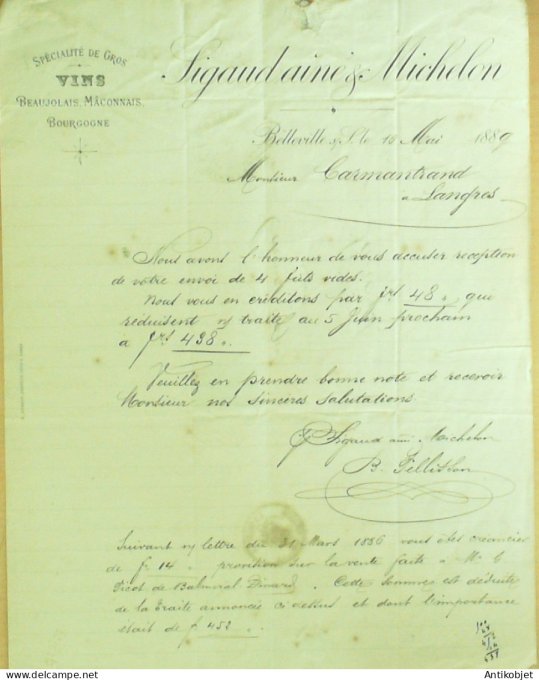 SPÉCIALITÉ DE GROS
VINS
BEAUJOLAIS, MÂCONNAIS,
BOURGOGNE
Sigaud ainé & Michelon
Belleville s/S. le 16 Mai 1889
Monsieur Carmantrand
a Langres
Nous avons l'honneur de vous accuser reception
de votre envoi de 4 futs vides.
Nous vous en créditons par frs 48 „ que
réduisent n/ traite au 5 Juin prochain
a frs 438 „.
Veuillez en prendre bonne note et recevoir
Monsieur nos sincères salutations
Sigaud ainé Michelon
B.
Suivant n/ lettre du 31 Mars 1886 vous êtes créancier
de fr 14 „ provision sur la vente faite a Mr
de . Cette somme est déduite
de la traite annoncée ci dessus et dont l'importance
était de f 452 „.
Antikobjet